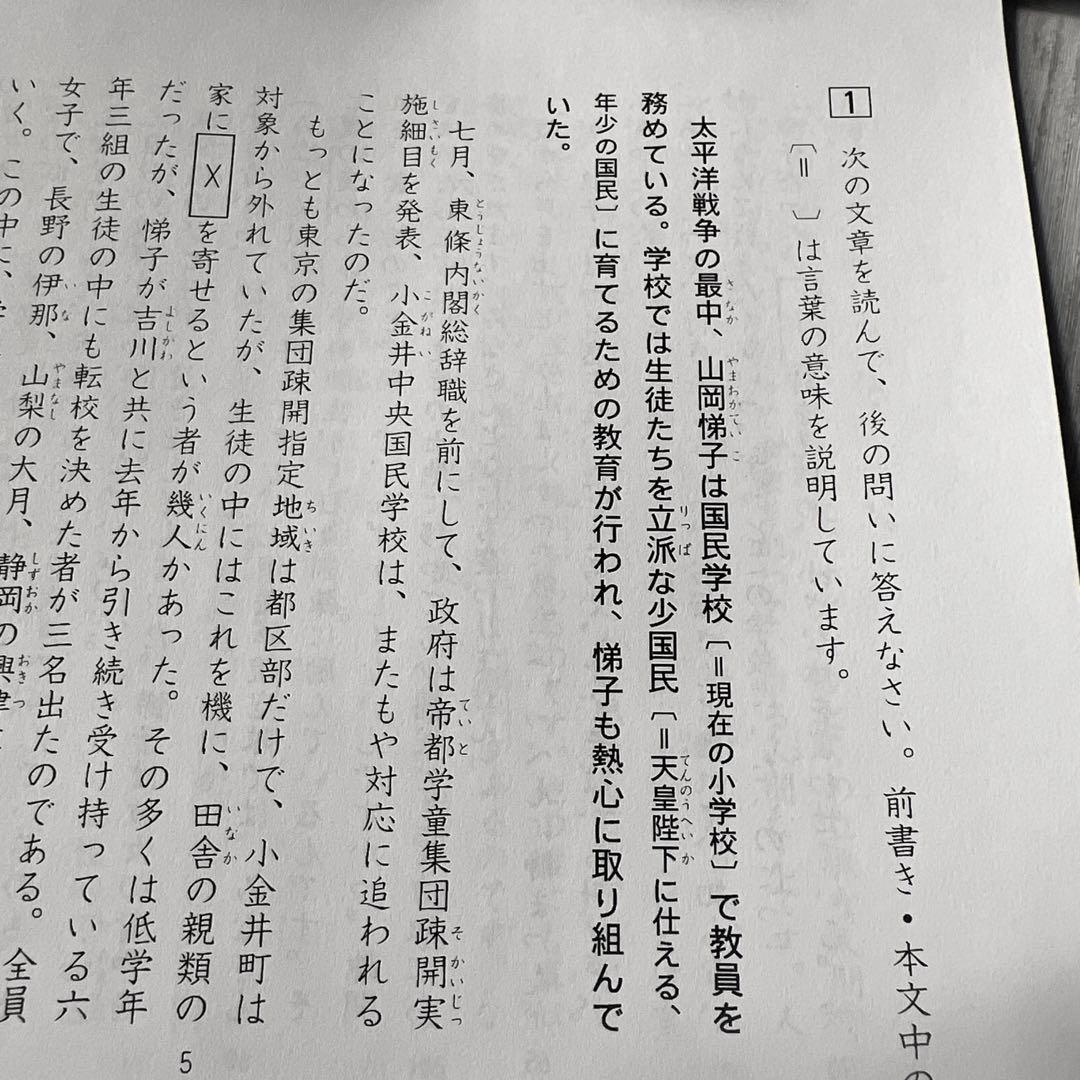 1
次の文章を読んで、後の問いに答えなさい。前書き・本文中の
〔＝　〕は言葉の意味を説明しています。
太平洋戦争の最中、山岡悌子は国民学校〔＝現在の小学校〕で教員を
務めている。学校では生徒たちを立派な少国民〔＝天皇陛下に仕える、
年少の国民〕に育てるための教育が行われ、悌子も熱心に取り組んで
いた。
七月、東條内閣総辞職を前にして、政府は帝都学童集団疎開実
施細目を発表、小金井中央国民学校は、またもや対応に追われる
ことになったのだ。
もっとも東京の集団疎開指定地域は都区部だけで、小金井町は
対象から外れていたが、生徒の中にはこれを機に、田舎の親類の
家に X を寄せるという者が幾人かあった。その多くは低学年
だったが、悌子が吉川と共に去年から引き続き受け持っている六
年三組の生徒の中にも転校を決めた者が三名出たのである。全員
女子で、長野の伊那、山梨の大月、静岡の興津
いく。この中に、
5